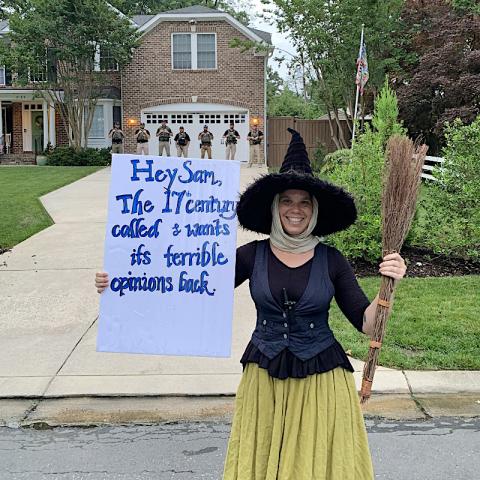 Hey Sam,
The 17th century
called & wants
its terrible
opinions back.